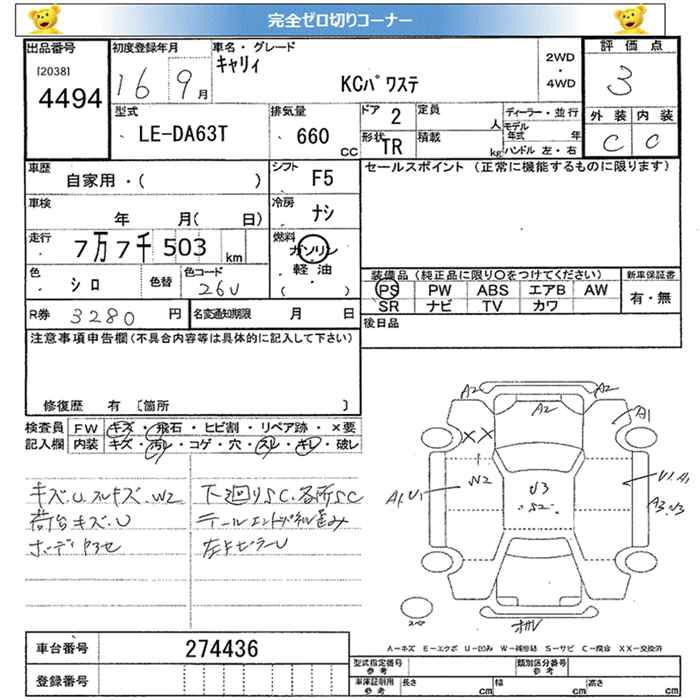 完全ゼロ切りコーナー
出品番号
[2038]
4494
初度登録年月
16 9月
車名・グレード
キャリィ
KCパワステ
2WD
・
4WD
評価点
3
外装 内装
C C
型式
LE-DA63T
排気量
660
CC
ドア 2
形状 TR
定員
人
積載
kg
ディーラー・並行
モデル年式 年
ハンドル 左・右
車歴
自家用・( )
シフト
F5
車検
年 月( 日)
冷房
ナシ
走行
7万7千503 km
燃料
ガソリン
軽油
( )
色
シロ
色替
色コード
26U
R券 3280 円
名変通知期限 月 日
セールスポイント (正常に機能するものに限ります)
装備品 (純正品に限り〇をつけてください)
PS PW ABS エアB AW
SR ナビ TV カワ
新車保証書
有・無
後日品
注意事項申告欄(不具合内容等は具体的に記入して下さい)
修復歴 有 〔箇所 〕
検査員記入欄
FW キズ・飛石・ヒビ割・リペア跡・×要
内装 キズ・汚レ・コゲ・穴・スレ・キレ・破レ
キズ.U.スレキズ.W2
荷台キズ.U
ボーディ
下廻りSC.各所SC
テールエンドパネル歪み
左上ピラーU
A2 A2
A2
A1
XX
W2
A1.U1
U3
S2
U1.A1
A3.U3
スペア
A-キズ E-エクボ U-凹み W-補修跡 S-サビ C-腐食 XX-交換済
車台番号 274436
登録番号
型式指定番号
参考
類別区分番号
参考
車庫証明用
参考
長さ cm 幅 cm 高さ cm